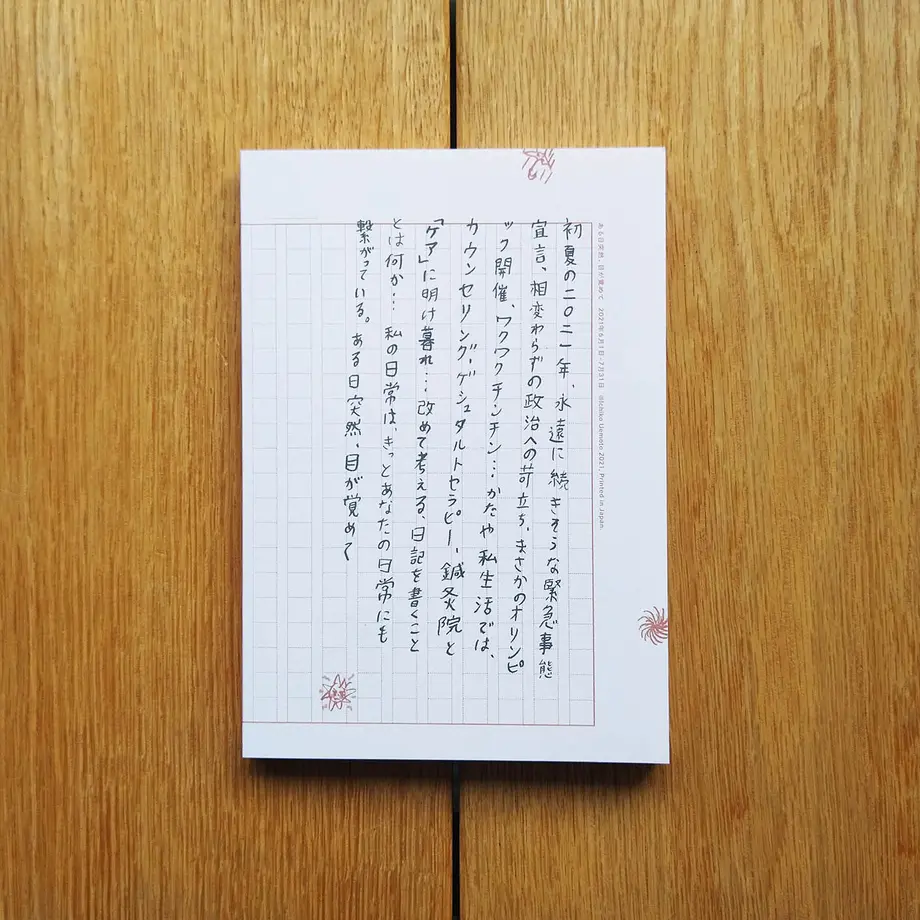 ある日突然、目が覚めて 2021年6月1日-7月31日 ©Ichiko Uemoto 2021, Printed in Japan.
初夏の二〇二一年、永遠に続きそうな緊急事態
宣言、相変わらずの政治への苛立ち、まさかのオリンピ
ック開催、ワクワクチンチン…かたや私生活では、
カウンセリング、ゲシュタルトセラピー、鍼灸院と
「ケア」に明け暮れ…改めて考える、日記を書くこと
とは何か…私の日常は、きっとあなたの日常にも
繋がっている。ある日突然、目が覚めて